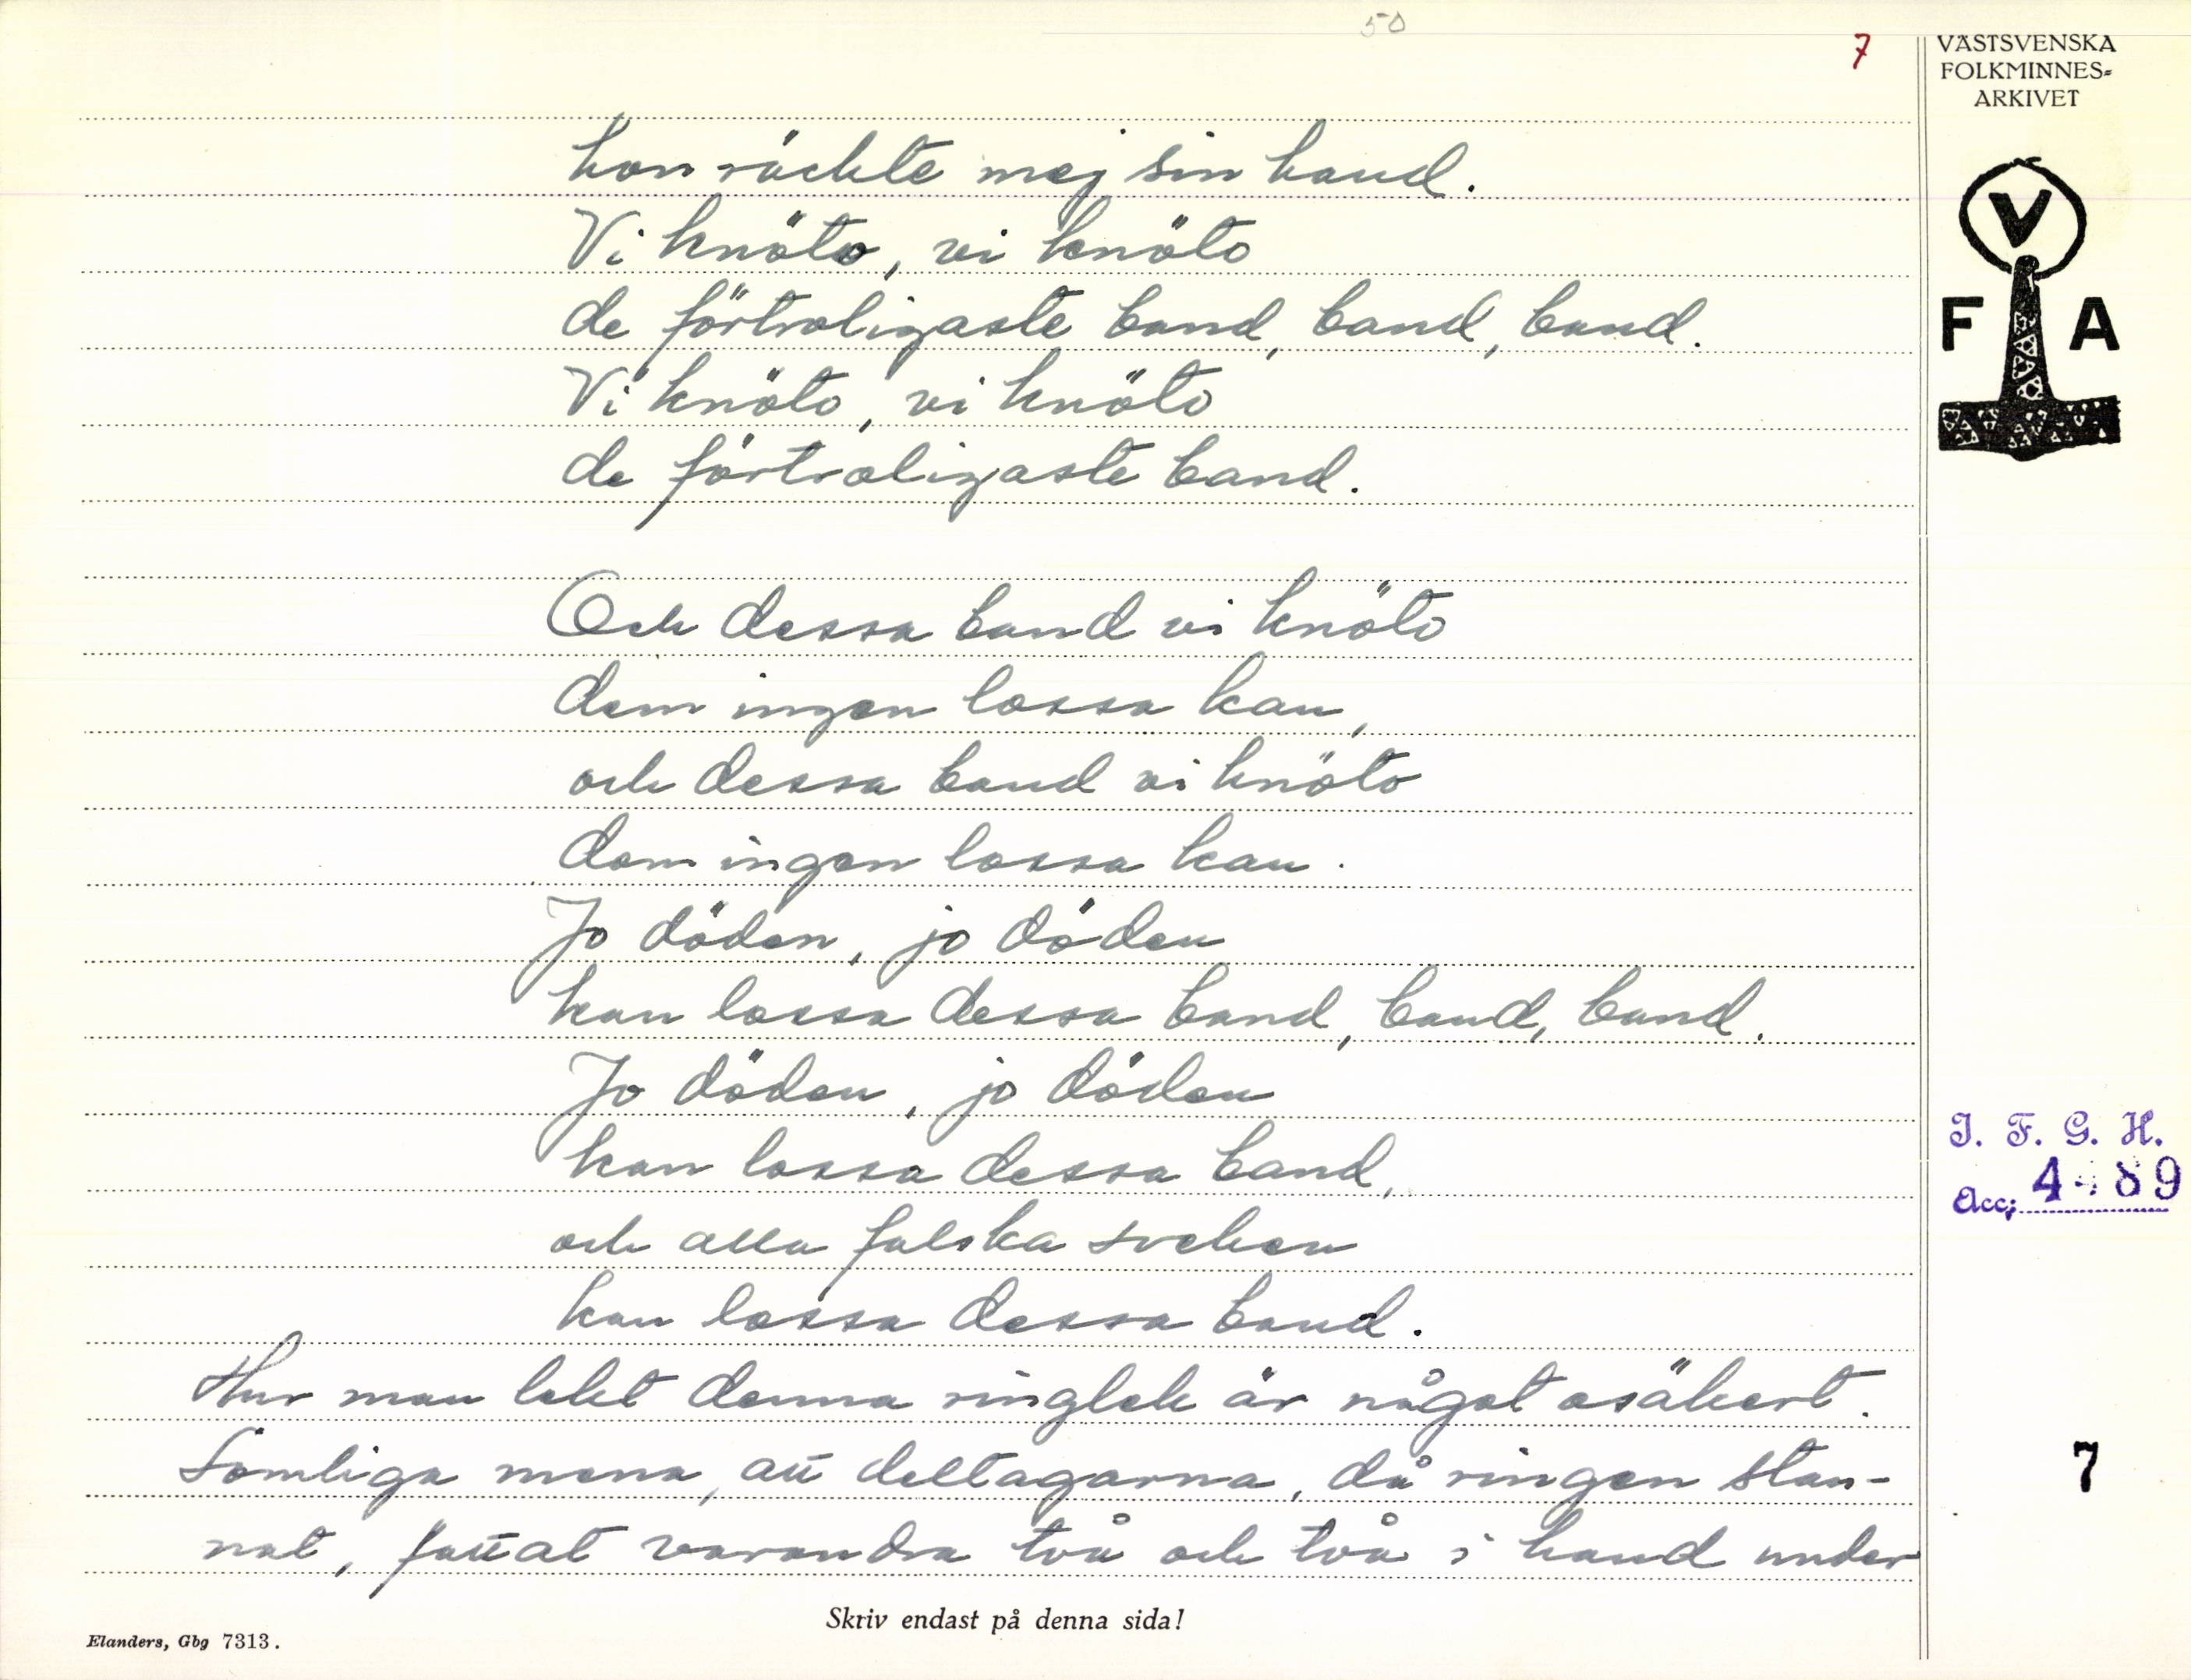 50
7
VÄSTSVENSKA
FOLKMINNES-
ARKIVET
V
F A
hon räckte mej sin hand.
Vi knöto, vi knöto
de förtroligaste band, band, band.
Vi knöto, vi knöto
de förtroligaste band.
Och dessa band vi knöto
dem ingen lossa kan,
och dessa band vi knöto
dem ingen lossa kan.
Jo döden, jo döden
kan lossa dessa band, band, band.
Jo döden, jo döden
kan lossa dessa band,
och alla falska sveken
kan lossa dessa band.
Hur man lekt denna ringlek är något osäkert.
Somliga mena, att deltagarna, då ringen stan-
nat, fattat varandra två och två i hand under
I. F. G. H.
Acc; 4489
7
Skriv endast på denna sida!
Elanders, Gbg 7313.